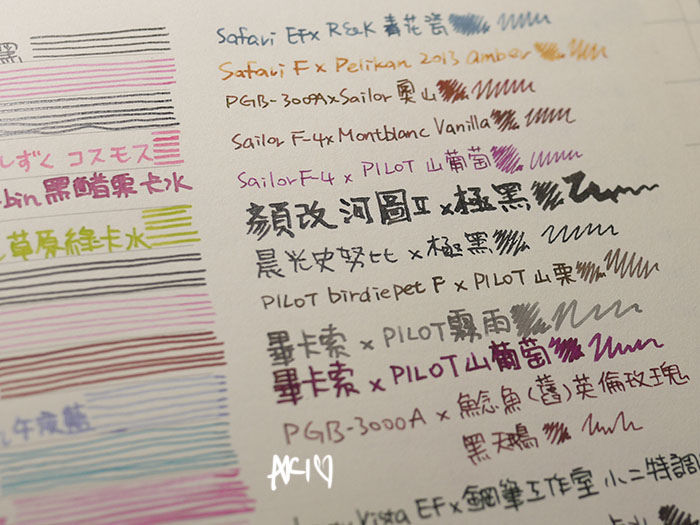 黑
しずく コスモス
bin 黑醋栗卡水
草原綠卡水
午夜藍
Safari EF x R&K 青花瓷
Safari F x Pelikan 2013 amber
PGB-3000A x Sailor 奧山
Sailor F-4 x Montblanc Vanilla
Sailor F-4 x PILOT 山葡萄
顏改 河圖II x 極黑
晨光史努比 x 極黑
PILOT birdiepet F x PILOT 山栗
畢卡索 x PILOT 霧雨
畢卡索 x PILOT 山葡萄
PGB-3000A x 鯰魚(舊)英倫玫瑰
黑天鵝
Vista EF x 鋼筆工作室 小二特調
AKI♡